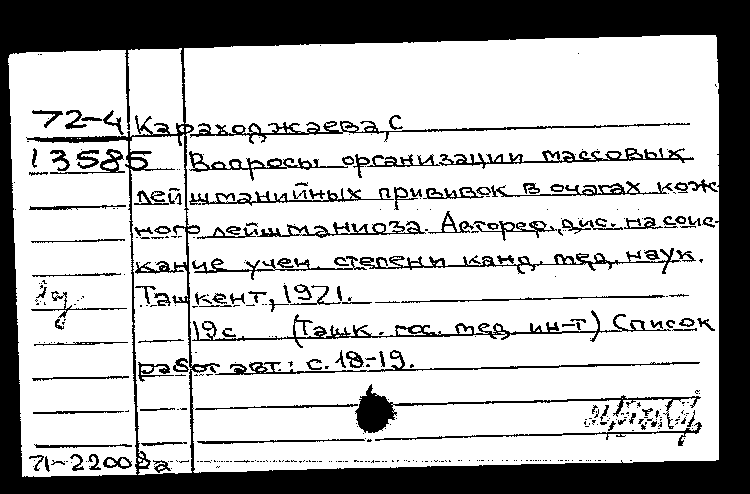 72-4 Караходжаева, С
13585 Вопросы организации массовых
лейшманийных прививок в очагах кож-
ного лейшманиоза. Автореф. дис. на соис-
кание учен. степени канд. мед. наук.
Ташкент, 1971.
19с. (Ташк. гос. мед. ин-т) Список
работ авт.: с. 18-19.
71-22008а